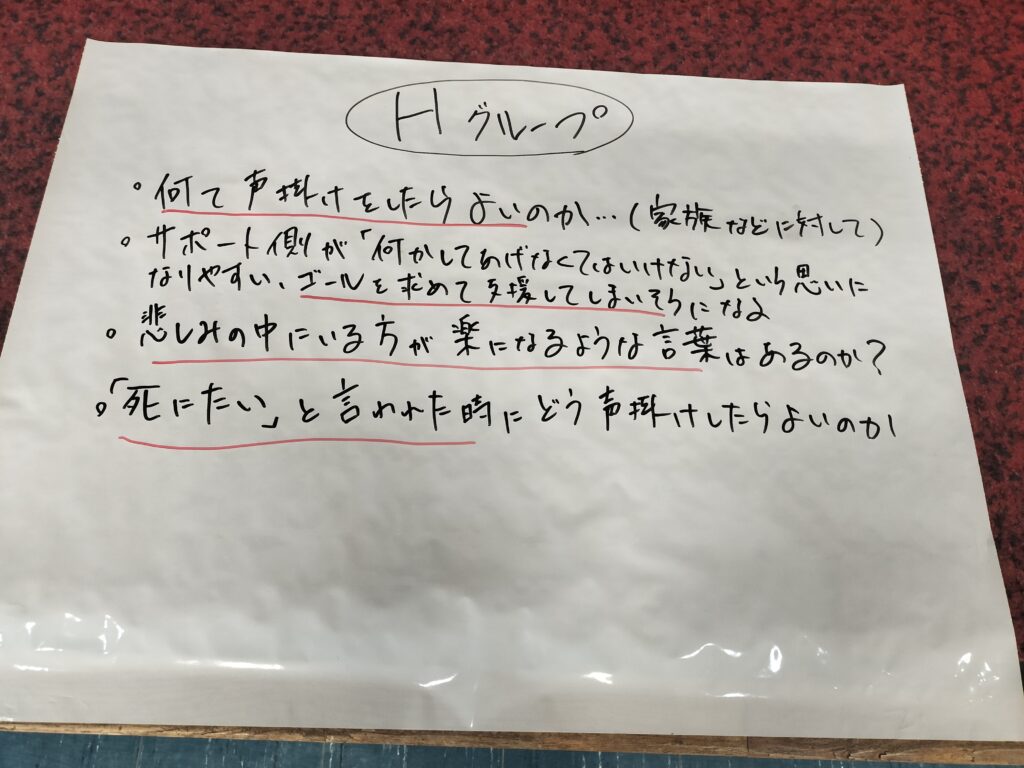 Hグループ
。何て声掛けをしたらよいのか…(家族などに対して)
。サポート側が「何かしてあげなくてはいけない」という思いに
なりやすい、ゴールを求めて支援してしまいそうになる
。悲しみの中にいる方が楽になるような言葉はあるのか?
。「死にたい」と言われた時にどう声掛けしたらよいのか